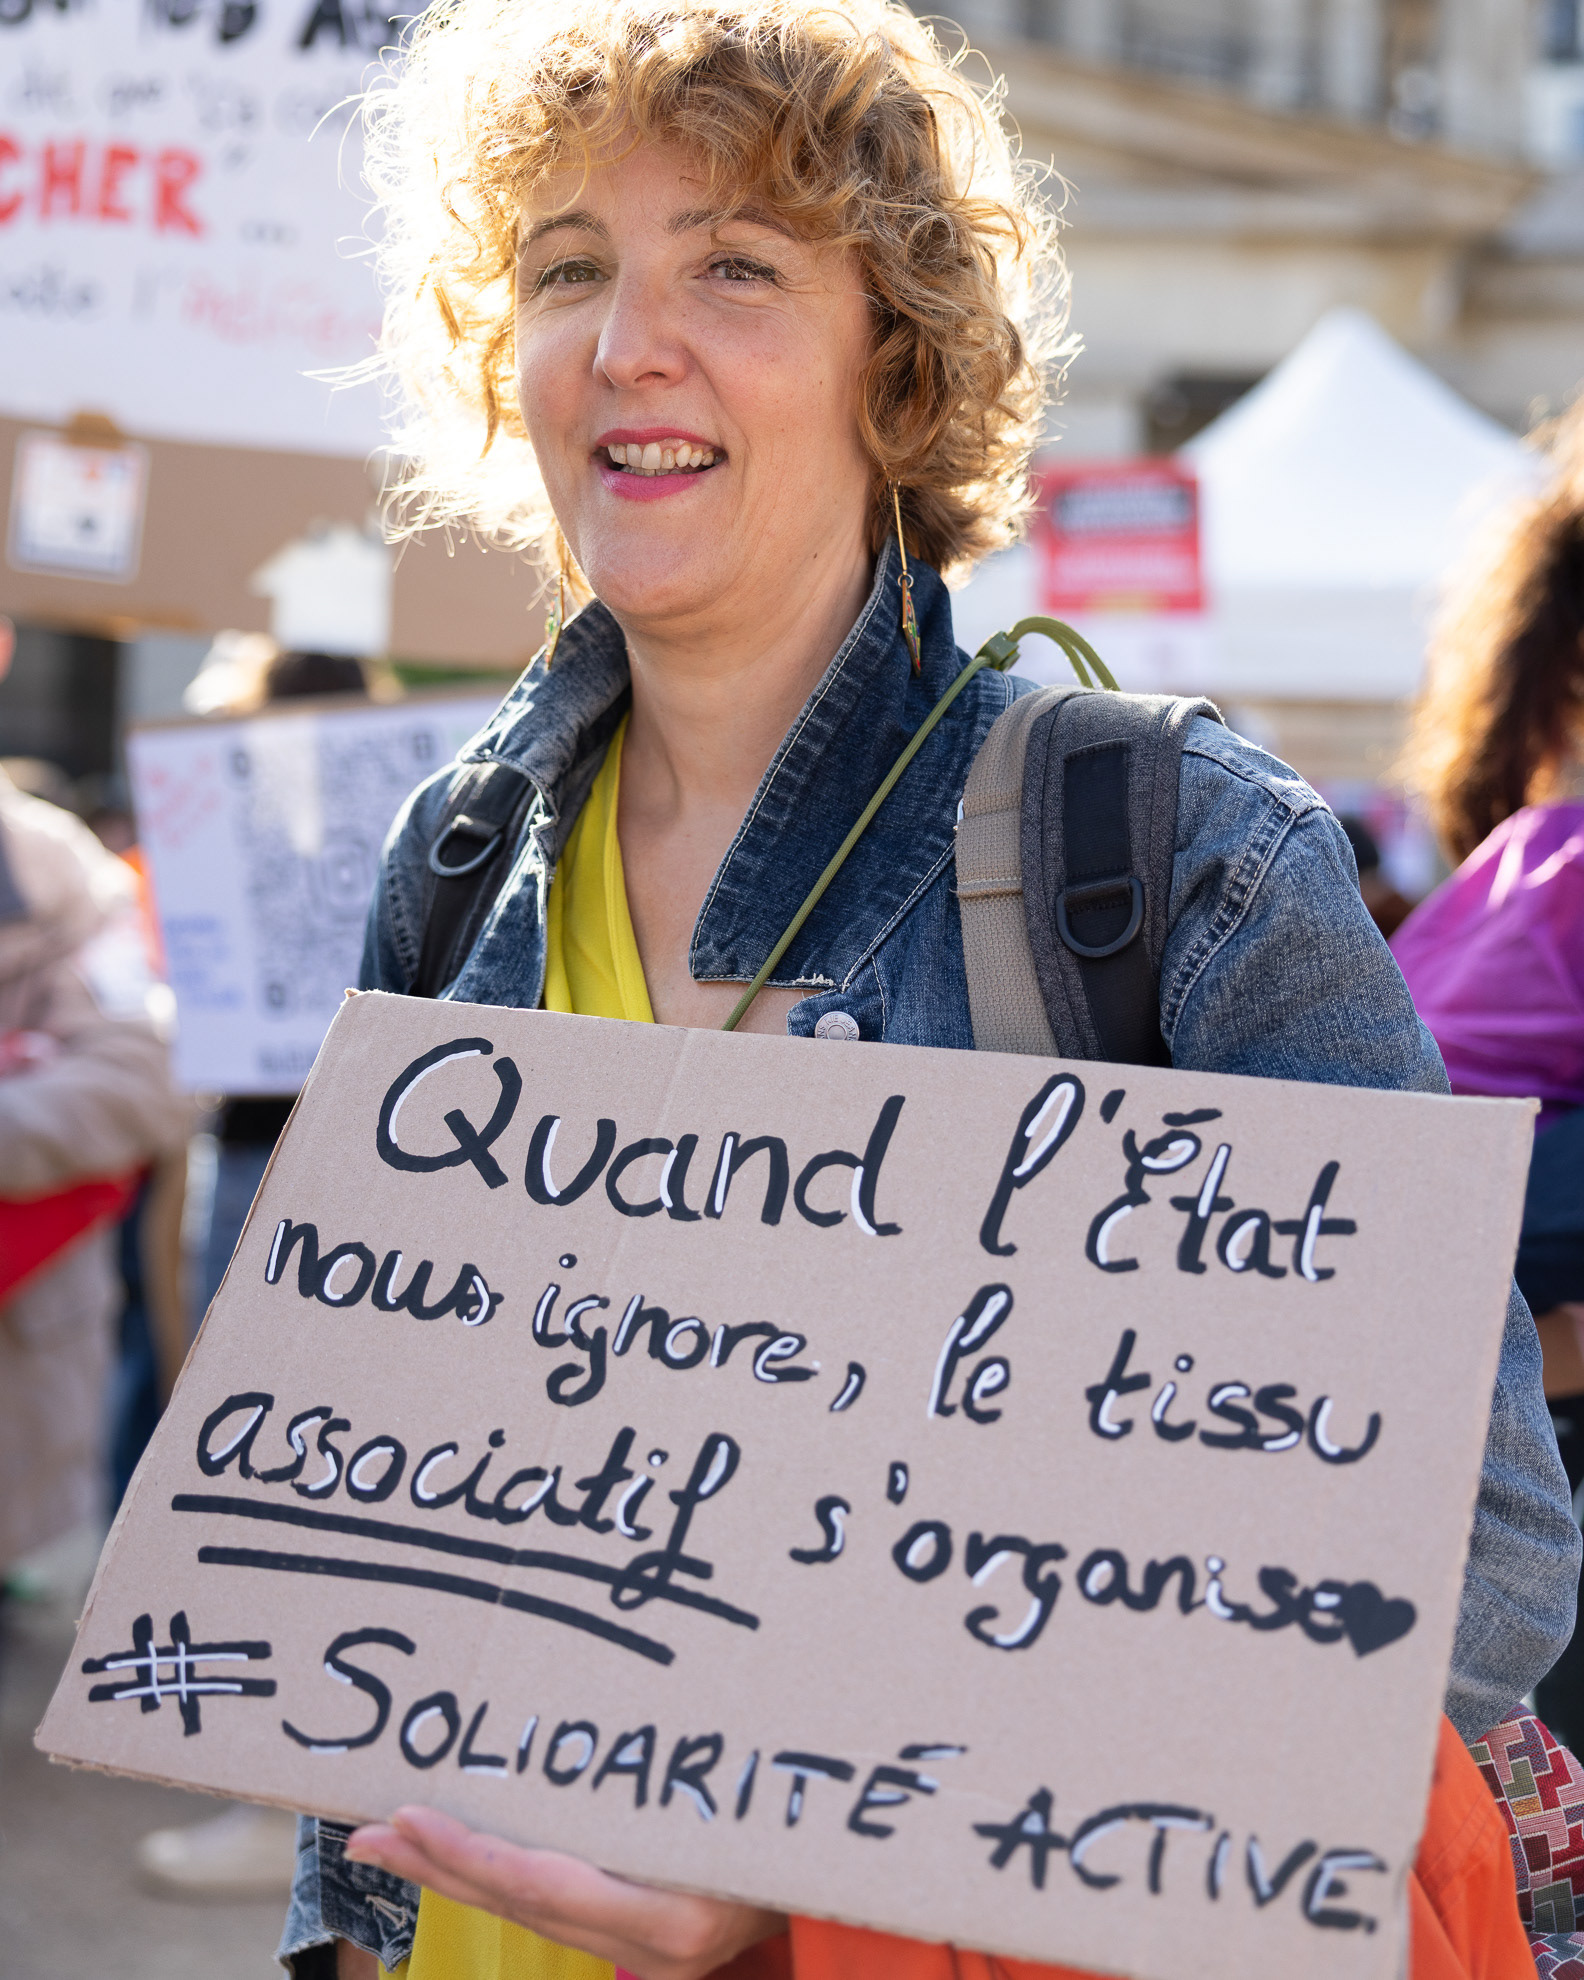 CHER
Quand l'État
nous ignore, le tissu
associatif s'organise♥
# SOLIDARITÉ ACTIVE